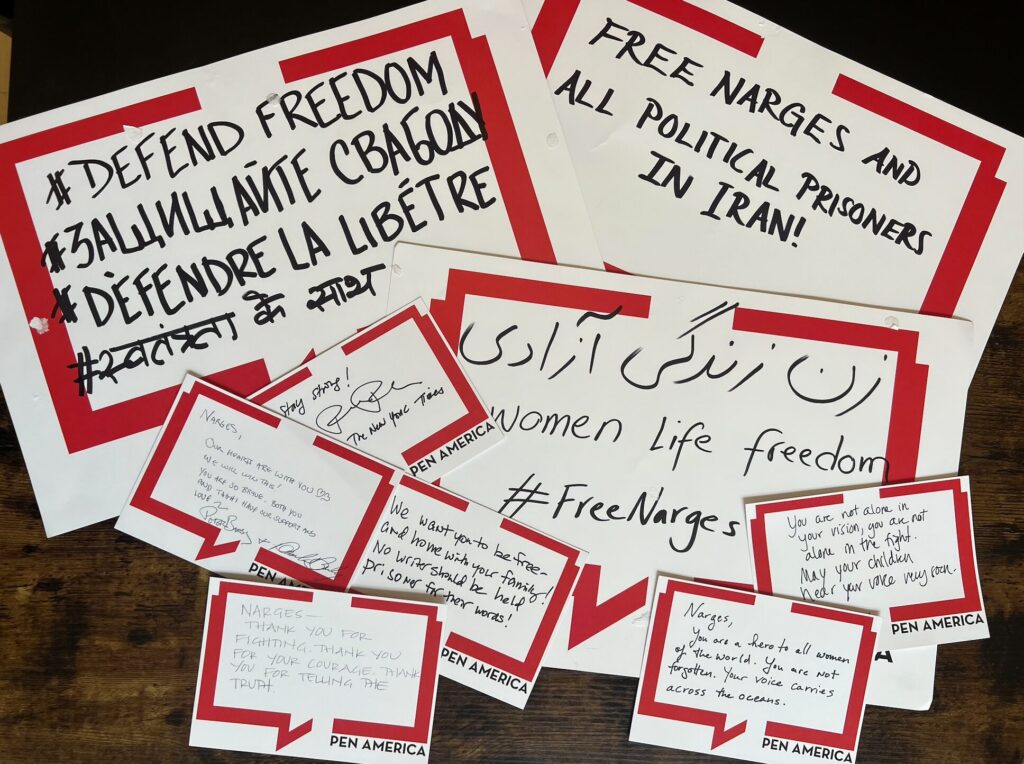 #DEFEND FREEDOM
#ЗАЩИЩАЙТЕ СВАБОДУ
#DÈFENDRE LA LIBÉTRE
#स्वतंत्रता के साथ
FREE NARGES AND
ALL POLITICAL PRISONERS
IN IRAN!
زن زندگی آزادی
women life freedom
#FreeNarges
Stay strong!
The New York Times
PEN AMERICA
NARGES,
OUR HEARTS ARE WITH YOU
WE WILL WIN THIS!
YOU ARE SO BRAVE. BOTH YOU
AND TAGHI HAVE OUR SUPPORT AND
LOVE
PEN AMERICA
We want you to be free-
and home with your family!
No writer should be held
prisoner for their words!
PEN AMERICA
NARGES—
THANK YOU FOR
FIGHTING. THANK YOU
FOR YOUR COURAGE. THANK
YOU FOR TELLING THE
TRUTH.
PEN AMERICA
You are not alone in
your vision, you are not
alone in the fight.
May your children
hear your voice very soon.
PEN AMERICA
Narges,
You are a hero to all women
of the world. You are not
forgotten. Your voice carries
across the oceans.
PEN AMERICA
A